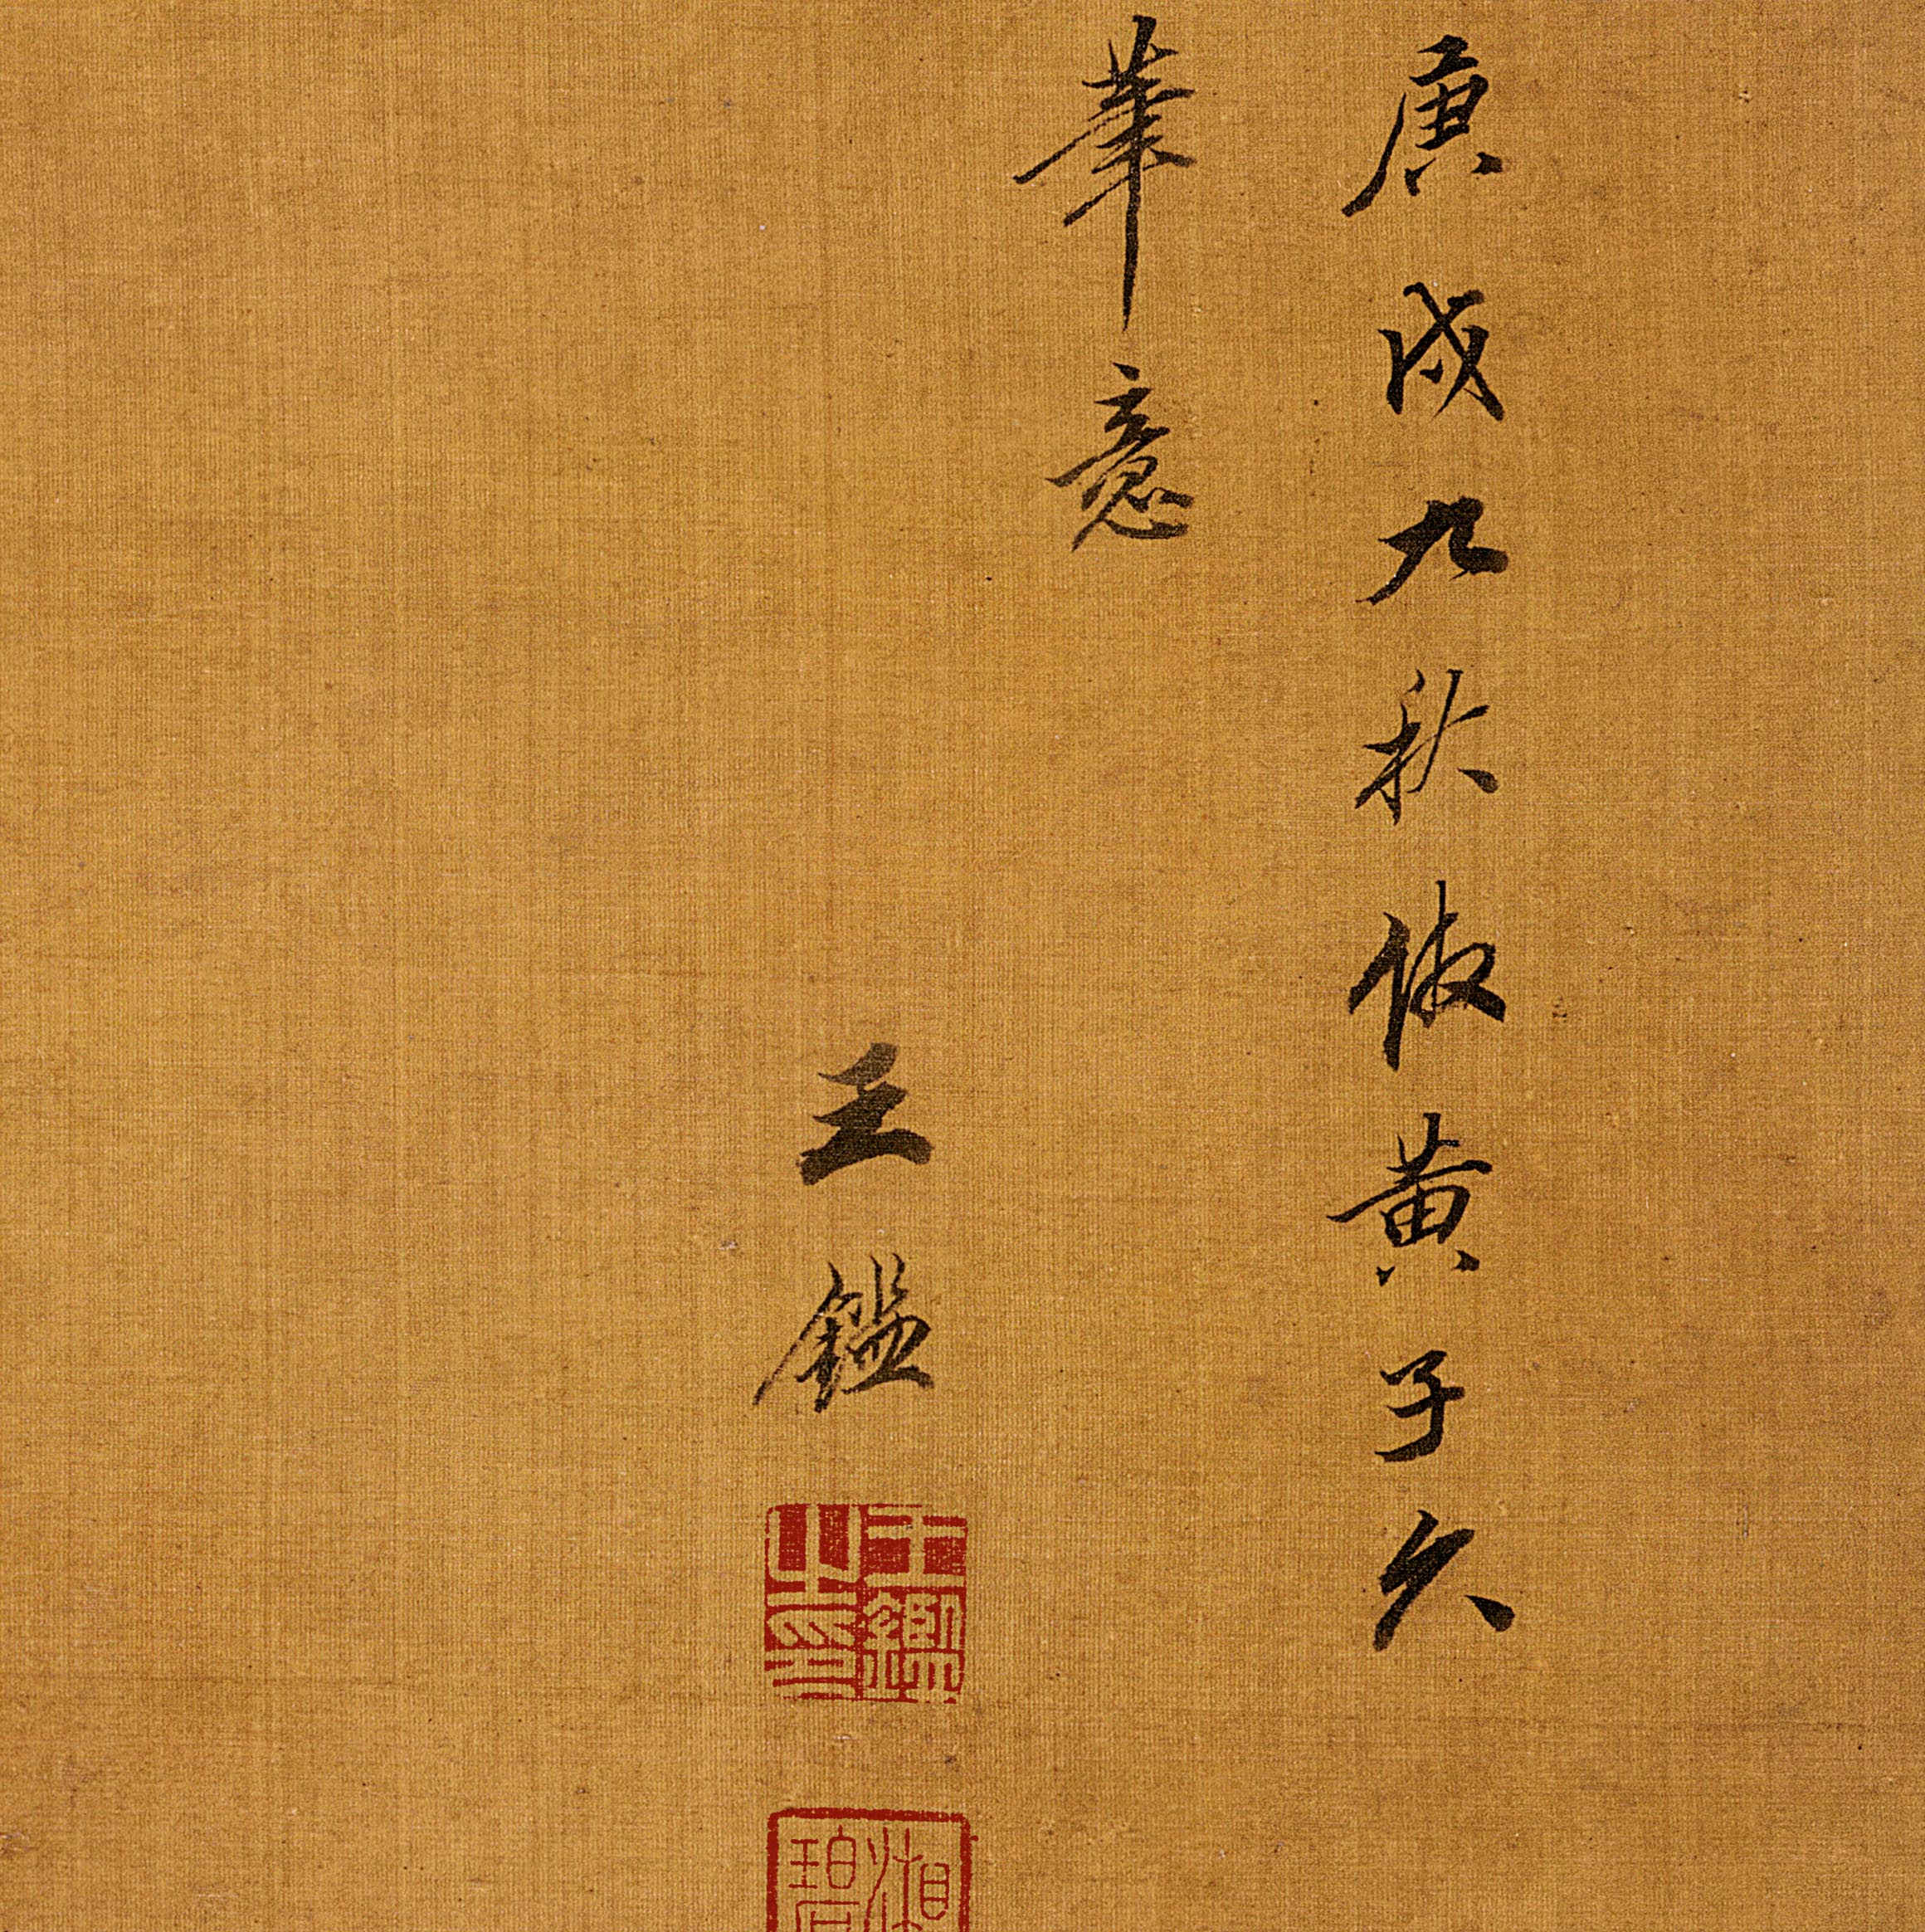 庚戌九秋倣黄子久
筆意
王鑑
王鑑之印
湘碧